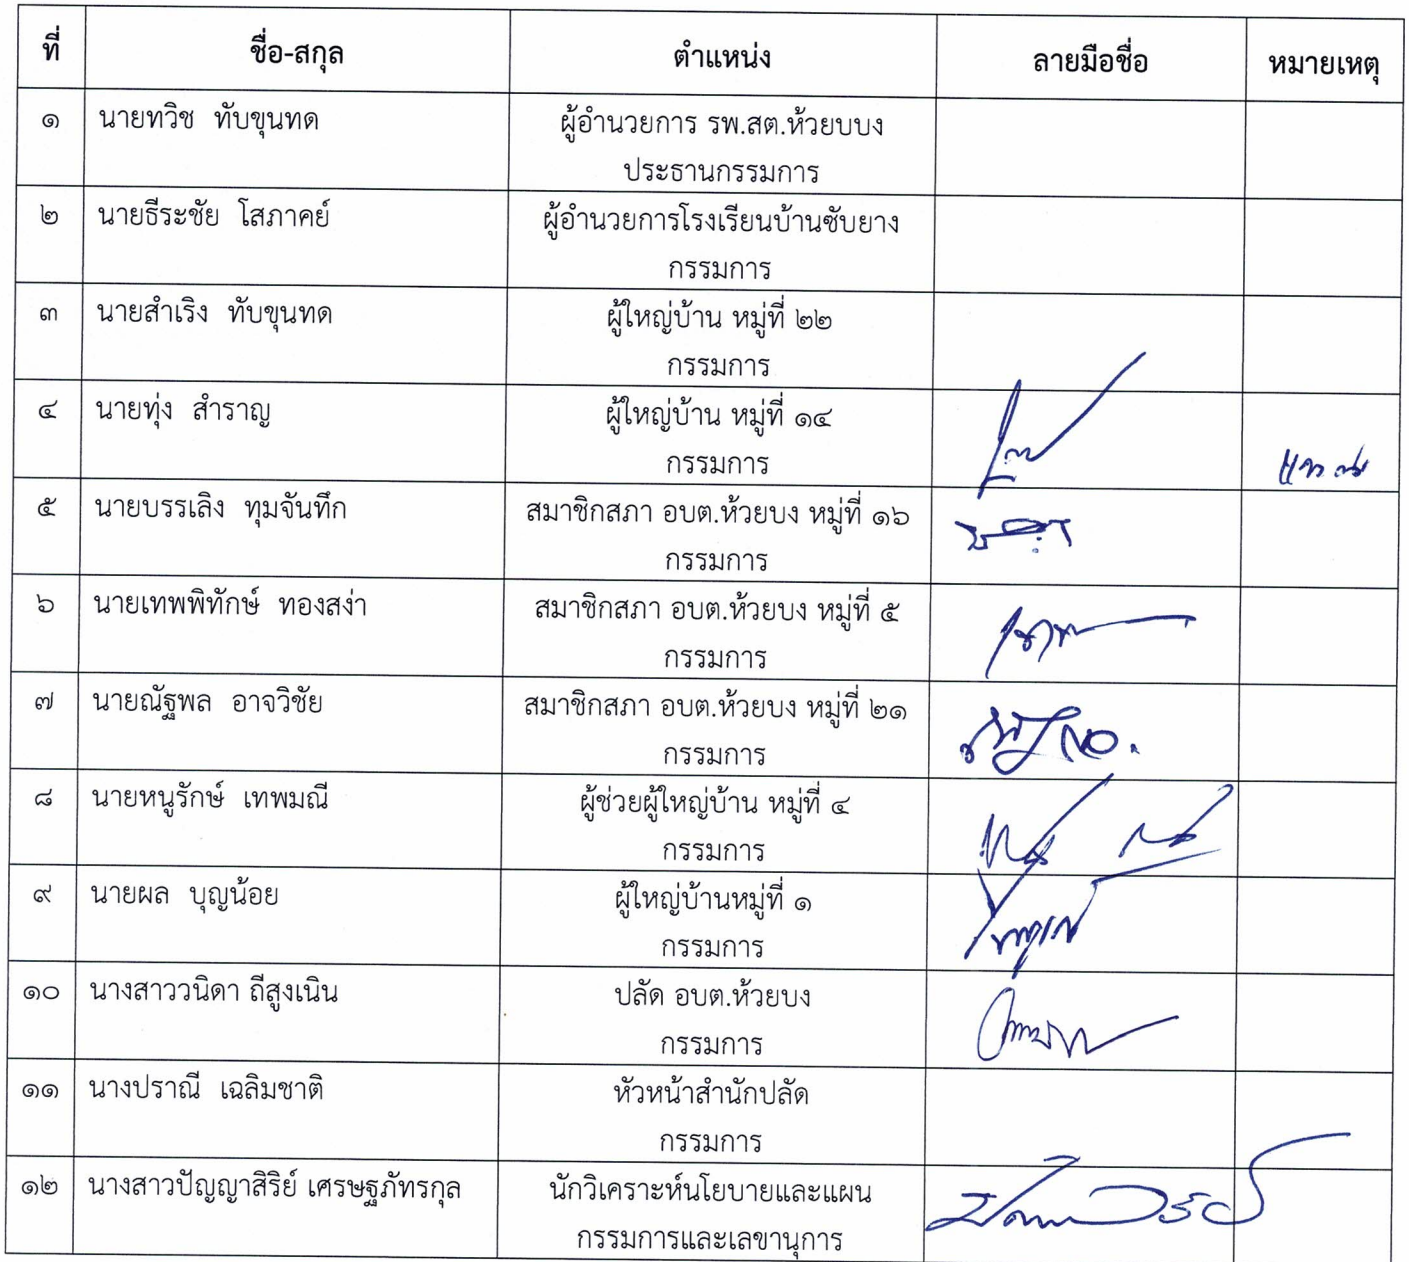 ที่ ชื่อ-สกุล ตำแหน่ง ลายมือชื่อ หมายเหตุ
๑ นายทวิช ทับขุนทด ผู้อำนวยการ รพ.สต.ห้วยบบง
ประธานกรรมการ
๒ นายธีระชัย โสภาคย์ ผู้อำนวยการโรงเรียนบ้านซับยาง
กรรมการ
๓ นายสำเริง ทับขุนทด ผู้ใหญ่บ้าน หมู่ที่ ๒๒
กรรมการ
๔ นายทุ่ง สำราญ ผู้ใหญ่บ้าน หมู่ที่ ๑๔
กรรมการ
๕ นายบรรเลิง ทุมจันทึก สมาชิกสภา อบต.ห้วยบง หมู่ที่ ๑๖
กรรมการ
๖ นายเทพพิทักษ์ ทองสง่า สมาชิกสภา อบต.ห้วยบง หมู่ที่ ๕
กรรมการ
๗ นายณัฐพล อาจวิชัย สมาชิกสภา อบต.ห้วยบง หมู่ที่ ๒๑
กรรมการ
๘ นายหนูรักษ์ เทพมณี ผู้ช่วยผู้ใหญ่บ้าน หมู่ที่ ๔
กรรมการ
๙ นายผล บุญน้อย ผู้ใหญ่บ้านหมู่ที่ ๑
กรรมการ
๑๐ นางสาววนิดา ถีสูงเนิน ปลัด อบต.ห้วยบง
กรรมการ
๑๑ นางปราณี เฉลิมชาติ หัวหน้าสำนักปลัด
กรรมการ
๑๒ นางสาวปัญญาสิริย์ เศรษฐภัทรกุล นักวิเคราะห์นโยบายและแผน
กรรมการและเลขานุการ